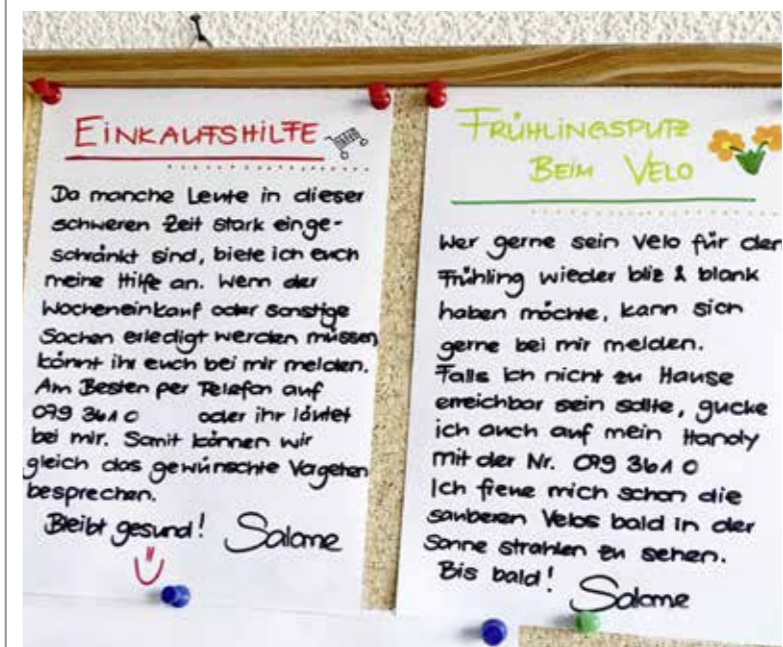 EINKAUFSHILFE
Da manche Leute in dieser
schweren Zeit stark einge-
schränkt sind, biete ich euch
meine Hilfe an. Wenn der
Wocheneinkauf oder sonstige
Sachen erledigt werden müssen,
könnt ihr euch bei mir melden.
Am Besten per Telefon auf
079 361 0 oder ihr läutet
bei mir. Somit können wir
gleich das gewünschte Vorgehen
besprechen.
Bleibt gesund! Salome
FRÜHLINGSPUTZ
BEIM VELO
Wer gerne sein Velo für den
Frühling wieder bliz & blank
haben möchte, kann sich
gerne bei mir melden.
Falls ich nicht zu Hause
erreichbar sein sollte, gucke
ich auch auf mein Handy
mit der Nr. 079 361 0
Ich freue mich schon die
sauberen Velos bald in der
Sonne strahlen zu sehen.
Bis bald! Salome